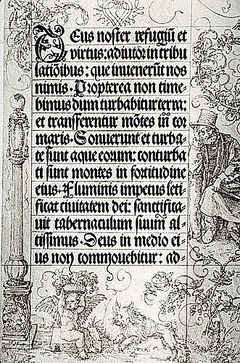 Deus noster refugiū et
virtus: adiutor in tribu
latōibus: que inuenerūt nos
nimis. Propterea non time-
bimus dum turbabitur terra:
et transferentur mōtes ī cor
maris. Sonuerunt et turba-
te sunt aque eorum: conturba
ti sunt montes in fortitudine
eius. Fluminis impetus leti-
ficat ciuitatem dei: sanctifica-
uit tabernaculum suum al-
tissimus. Deus in medio ei-
us non commouebitur: ad-